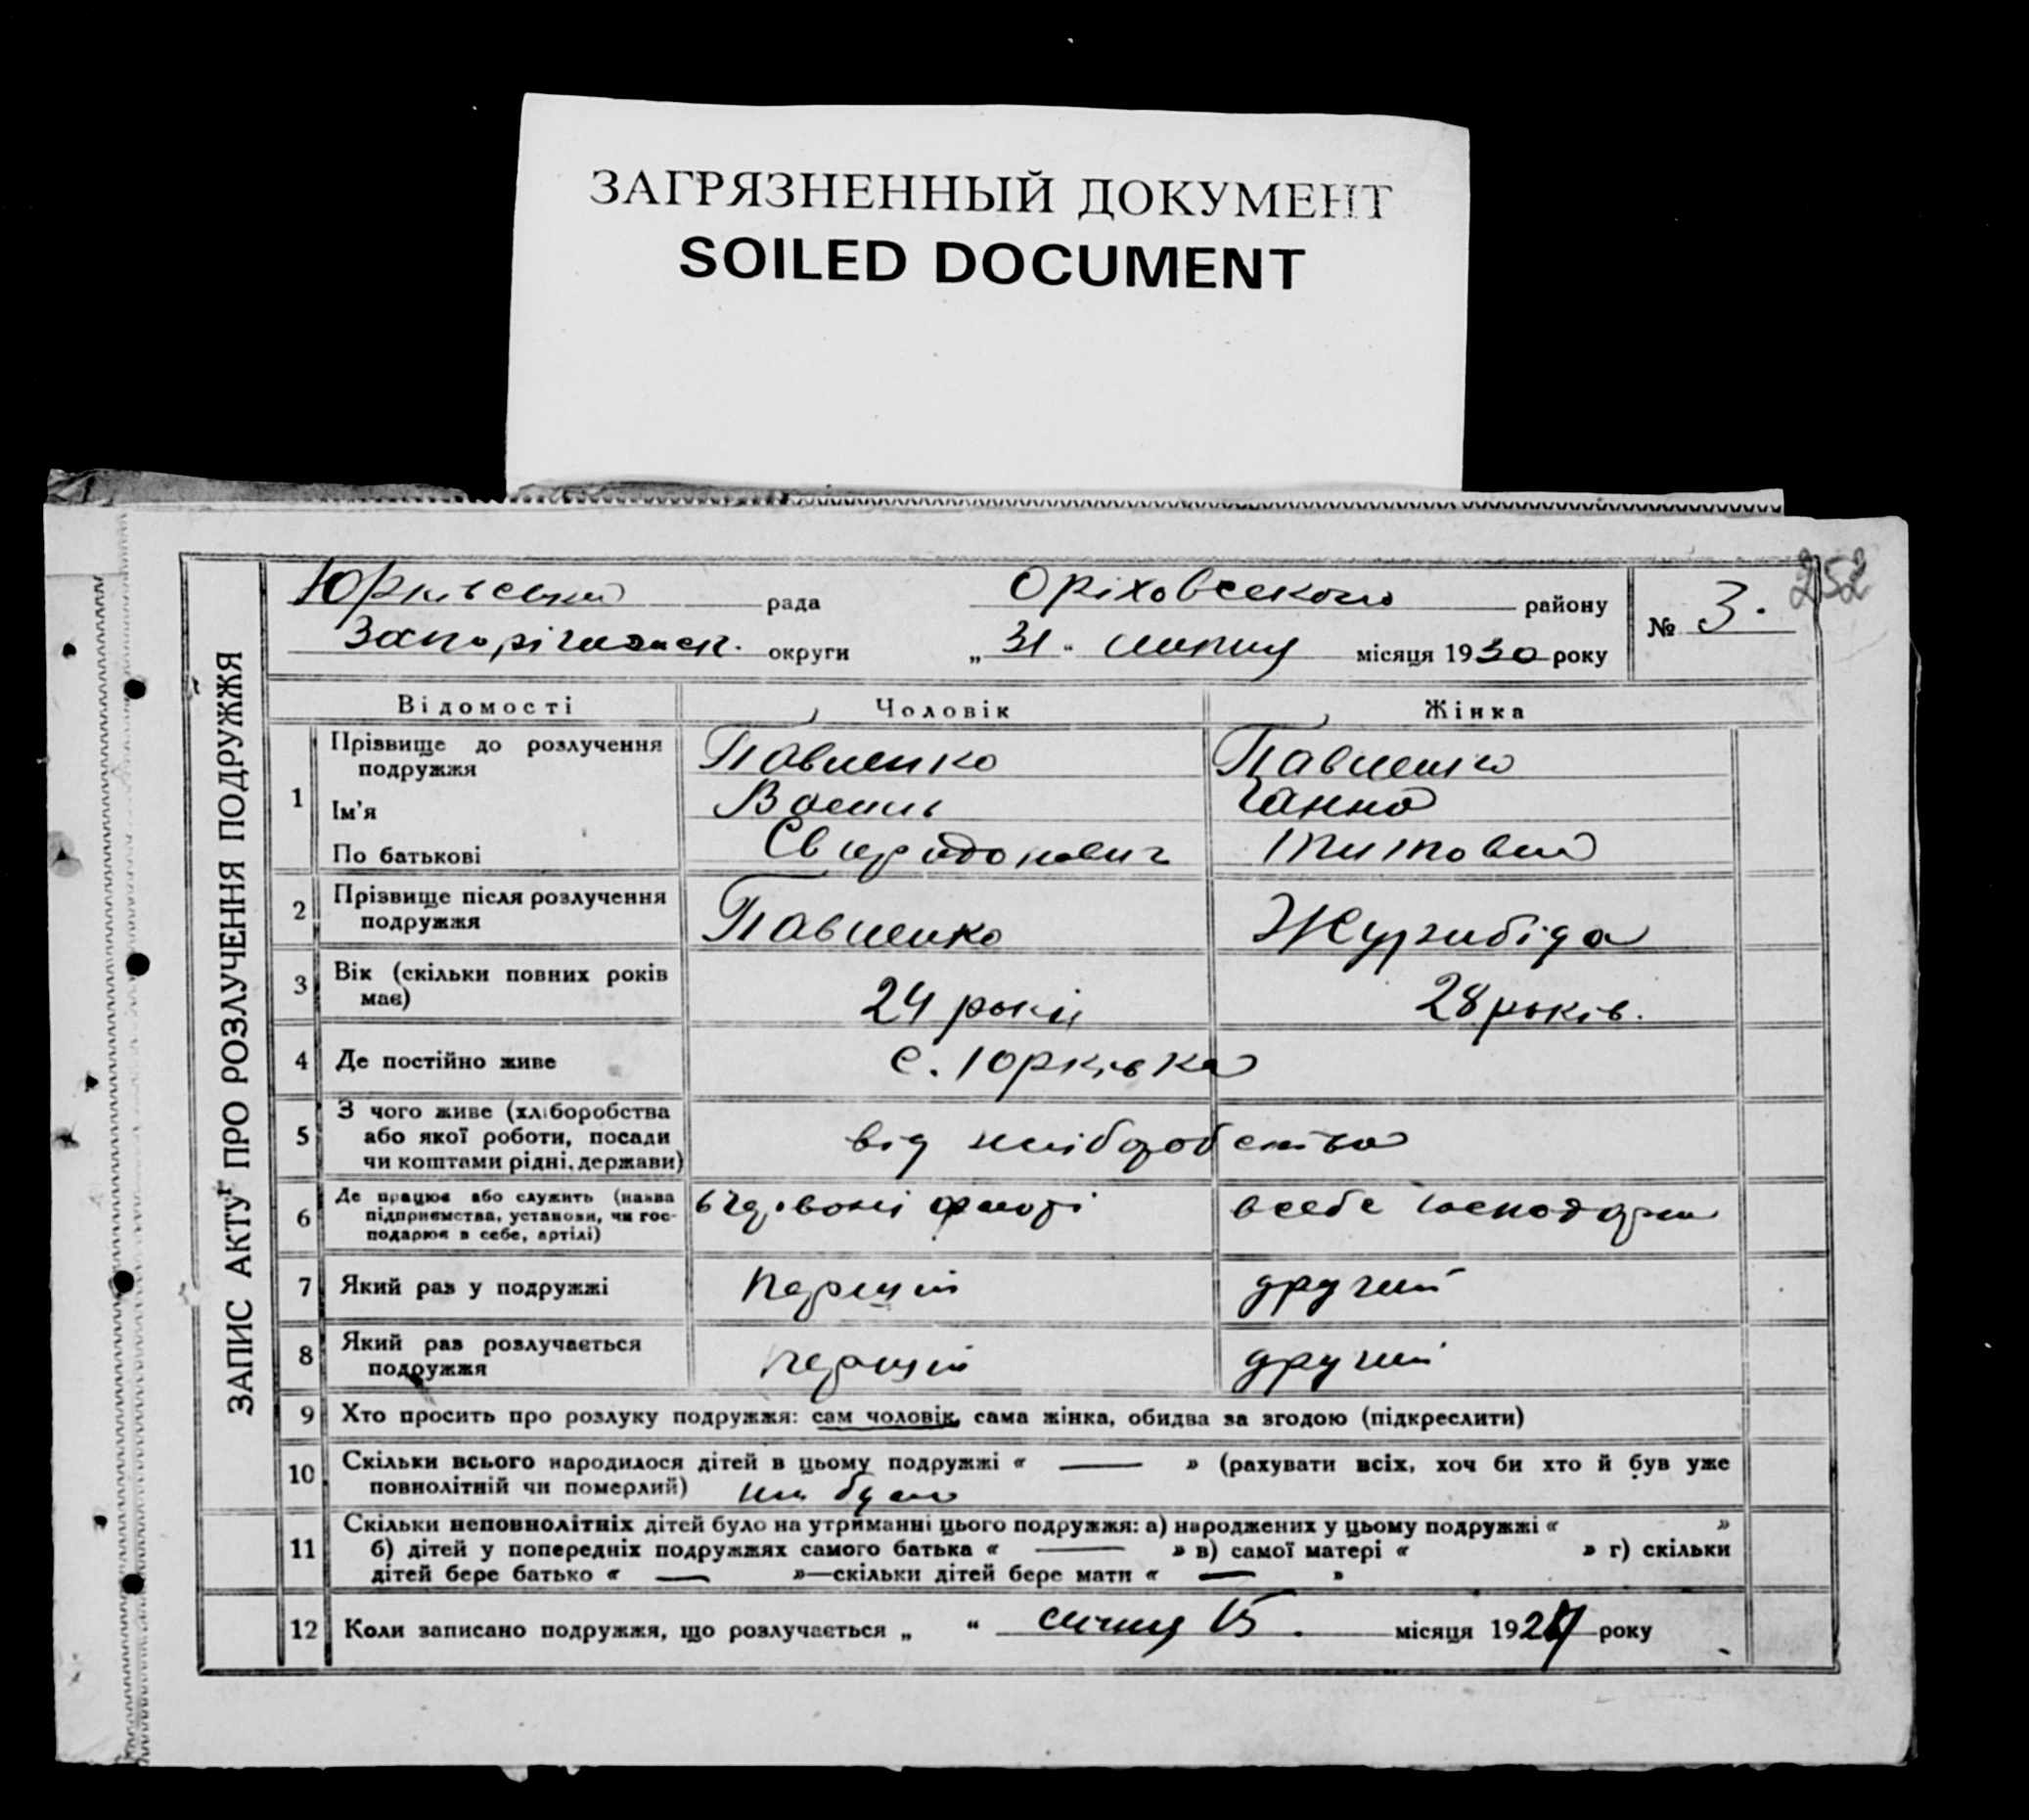 ЗАГРЯЗНЕННЫЙ ДОКУМЕНТ
SOILED DOCUMENT
252
ЗАПИС АКТУ ПРО РОЗЛУЧЕННЯ ПОДРУЖЖЯ
Юрківська рада Оріховського району № 3.
Запоріжськ. округи „ 31 " липня місяця 1930 року
Відомості Чоловік Жінка
1 Прізвище до розлучення подружжя Павленко Павленко
Ім'я Василь Ганна
По батькові Свиридонович Титовна
2 Прізвище після розлучення подружжя Павленко Журибіда
3 Вік (скільки повних років має) 24 роки 28 років.
4 Де постійно живе с. Юрківка
5 З чого живе (хліборобства або якої роботи, посади чи коштами рідні, держави) від хліборобства
6 Де працює або служить (назва підприємства, установи, чи господарює в себе, артілі) в Червоні флоті в себе
7 Який раз у подружжі перший другий
8 Який раз розлучається подружжя перший другий
9 Хто просить про розлуку подружжя: сам чоловік, сама жінка, обидва за згодою (підкреслити)
10 Скільки всього народилося дітей в цьому подружжі « — » (рахувати всіх, хоч би хто й був уже
повнолітній чи померлий) не було
11 Скільки неповнолітніх дітей було на утриманні цього подружжя: а) народжених у цьому подружжі « »
б) дітей у попередніх подружжях самого батька « — » в) самої матері « » г) скільки
дітей бере батько « — »—скільки дітей бере мати « — »
12 Коли записано подружжя, що розлучається „ “ січня 15. місяця 192 року